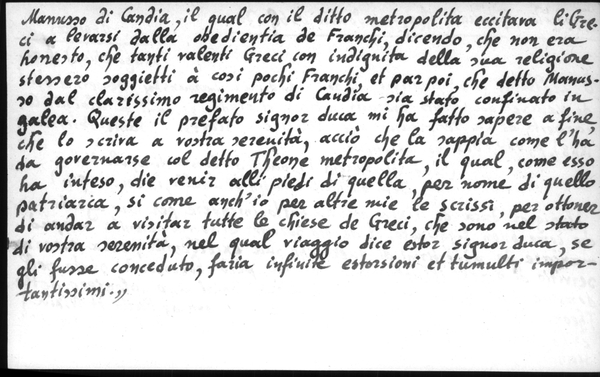 Manusso di Candia, il qual con il ditto metropolita eccitava li Gre-
ci a levarsi dalla obedientia de Franchi, dicendo, che non era
honesto, che tanti valenti Greci con indignita della sua religione
stessero soggietti à cosi pochi Franchi, et par poi, che detto Manus-
so dal clarissimo regimento di Candia sia stato confinato in
galea. Queste il prefato signor duca mi ha fatto sapere a fine,
che lo scriva a vostra serenità, acciò che la sappia come l'ha
da governarse col detto Theone metropolita, il qual, come esso
ha inteso, die venir alli piedi di quella, per nome di quello
patriarca, si come anch'io per altre mie le scrissi, per ottener
di andar a visitar tutte le chiese de Greci, che sono nel stato
di vostra serenità, nel qual viaggio dice estor signor duca, se
gli fusse conceduto, faria infinite estorsioni et tumulti impor-
tantissimi.»